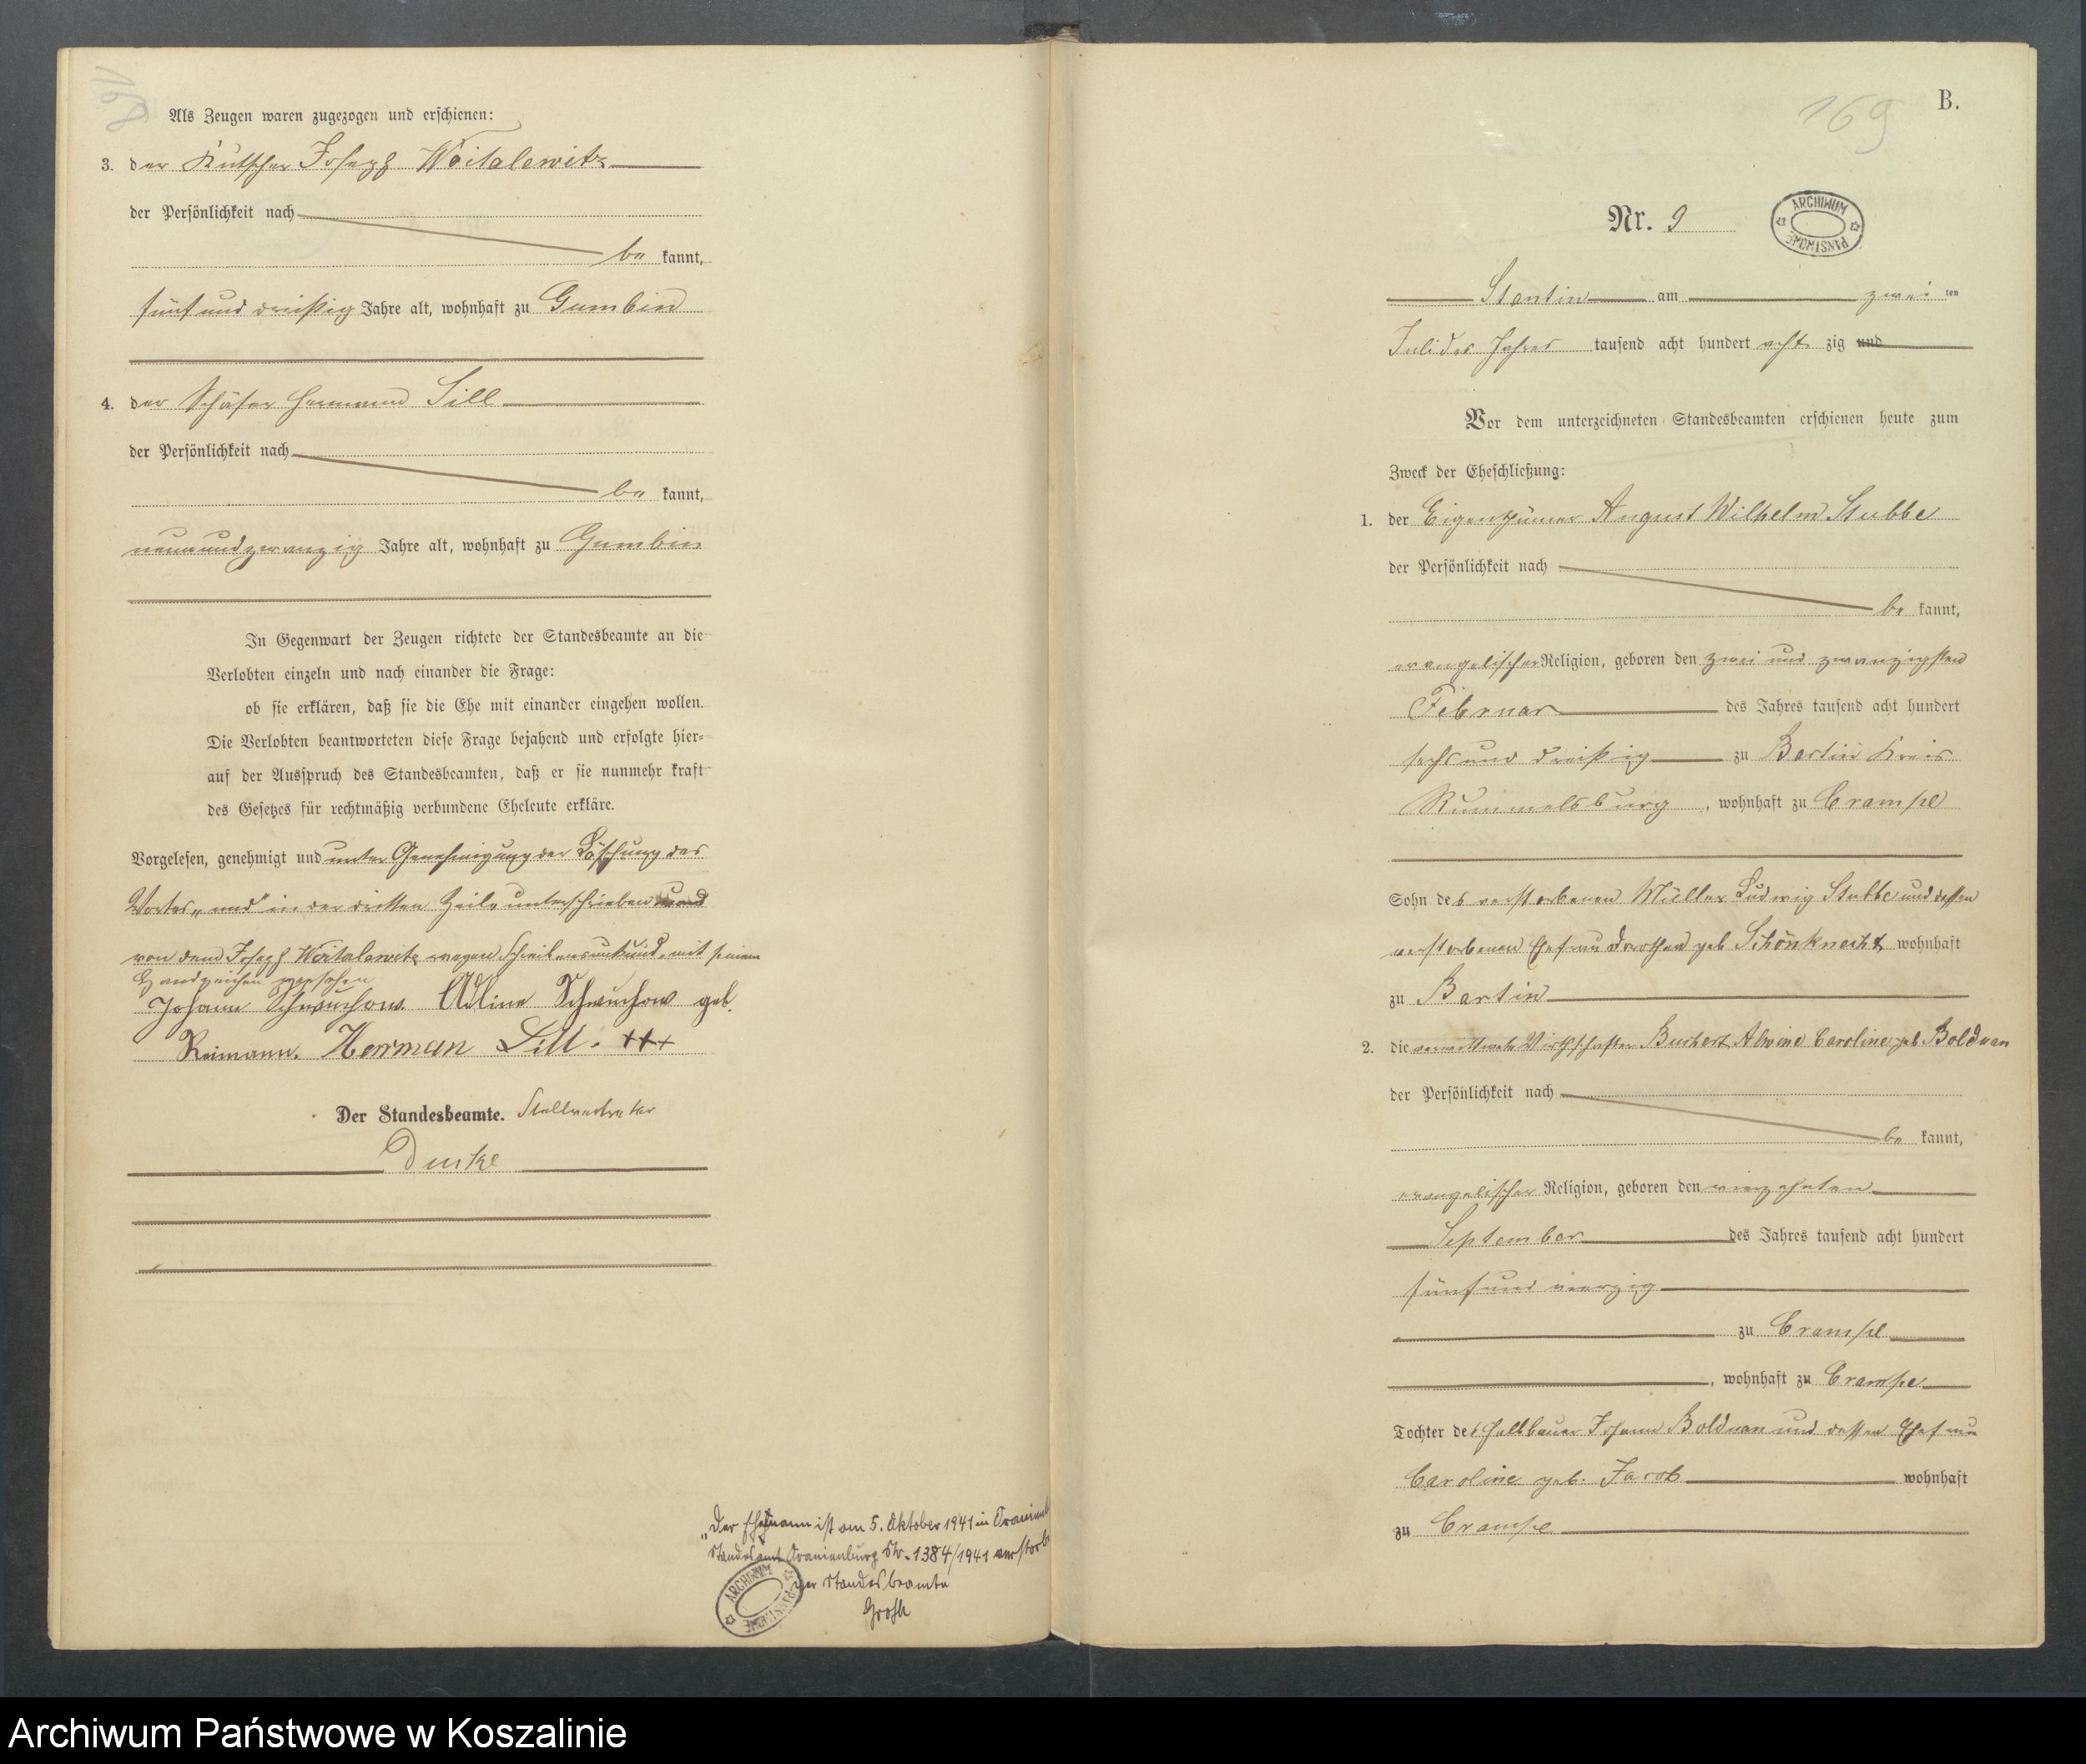 168
Als Zeugen waren zugezogen und erschienen:
3. der Kutscher Joseph Woitalewitz
der Persönlichkeit nach
be kannt,
fünf und dreißig Jahre alt, wohnhaft zu Gumbin
4. der Schäfer Hermann Sill
der Persönlichkeit nach
be kannt,
neunundzwanzig Jahre alt, wohnhaft zu Gumbin
In Gegenwart der Zeugen richtete der Standesbeamte an die
Verlobten einzeln und nach einander die Frage:
ob sie erklären, daß sie die Ehe mit einander eingehen wollen.
Die Verlobten beantworteten diese Frage bejahend und erfolgte hier-
auf der Ausspruch des Standesbeamten, daß er sie nunmehr kraft
des Gesetzes für rechtmäßig verbundene Eheleute erkläre.
Vorgelesen, genehmigt und unter Genehmigung der Löschung des
Wortes „und" in der dritten Zeile unterschrieben und
von dem Joseph Woitalewitz wegen Schreibensunkunde mit seinem
Handzeichen versehen
Johann Schwuchow. Aline Schwuchow geb.
Reimann. Herman Sill. +++
Der Standesbeamte. Stellvertreter
„Der Ehemann ist am 5. Oktober 1941 in
Standesamt Oranienburg Nr. 1384/1941
Der Standesbeamte
ARCHIWUM PAŃSTWOWE
169
B.
Nr. 9
ARCHIWUM PAŃSTWOWE
Stentin am zwei ten
Juli des Jahres tausend acht hundert acht zig und
Vor dem unterzeichneten Standesbeamten erschienen heute zum
Zweck der Eheschließung:
1. der Eigenthümer August Wilhelm Stubbe
der Persönlichkeit nach
be kannt,
evangelischer Religion, geboren den zwei und zwanzigsten
Februar des Jahres tausend acht hundert
sechs und dreißig zu Bartin Kreis
Rummelsburg, wohnhaft zu Crampe
Sohn des verstorbenen Müller Ludwig Stubbe und dessen
verstorbenen Ehefrau Dorothea geb Schönknecht wohnhaft
zu Bartin
2. die verwittwete Alwine Caroline geb. Bolduan
der Persönlichkeit nach
be kannt,
evangelischer Religion, geboren den vierzehnten
September des Jahres tausend acht hundert
fünf und vierzig
zu Crampe
, wohnhaft zu Crampe
Tochter des Halbbauer Johann Bolduan und dessen Ehefrau
Caroline geb. Jacob wohnhaft
zu Crampe
Archiwum Państwowe w Koszalinie